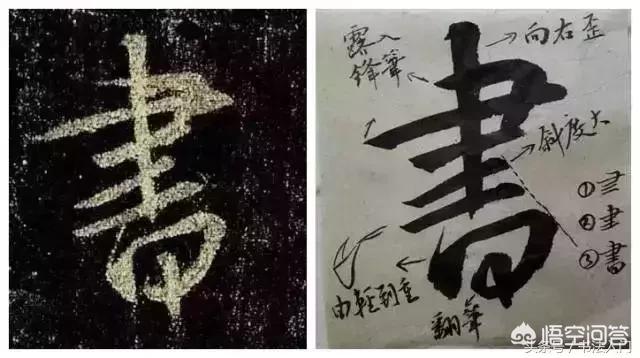 書
露入
鋒筆
→向右歪
書
→斜度大
①
②聿
③書
由輕到重
翻筆
头条号/书法入门
悟空问答